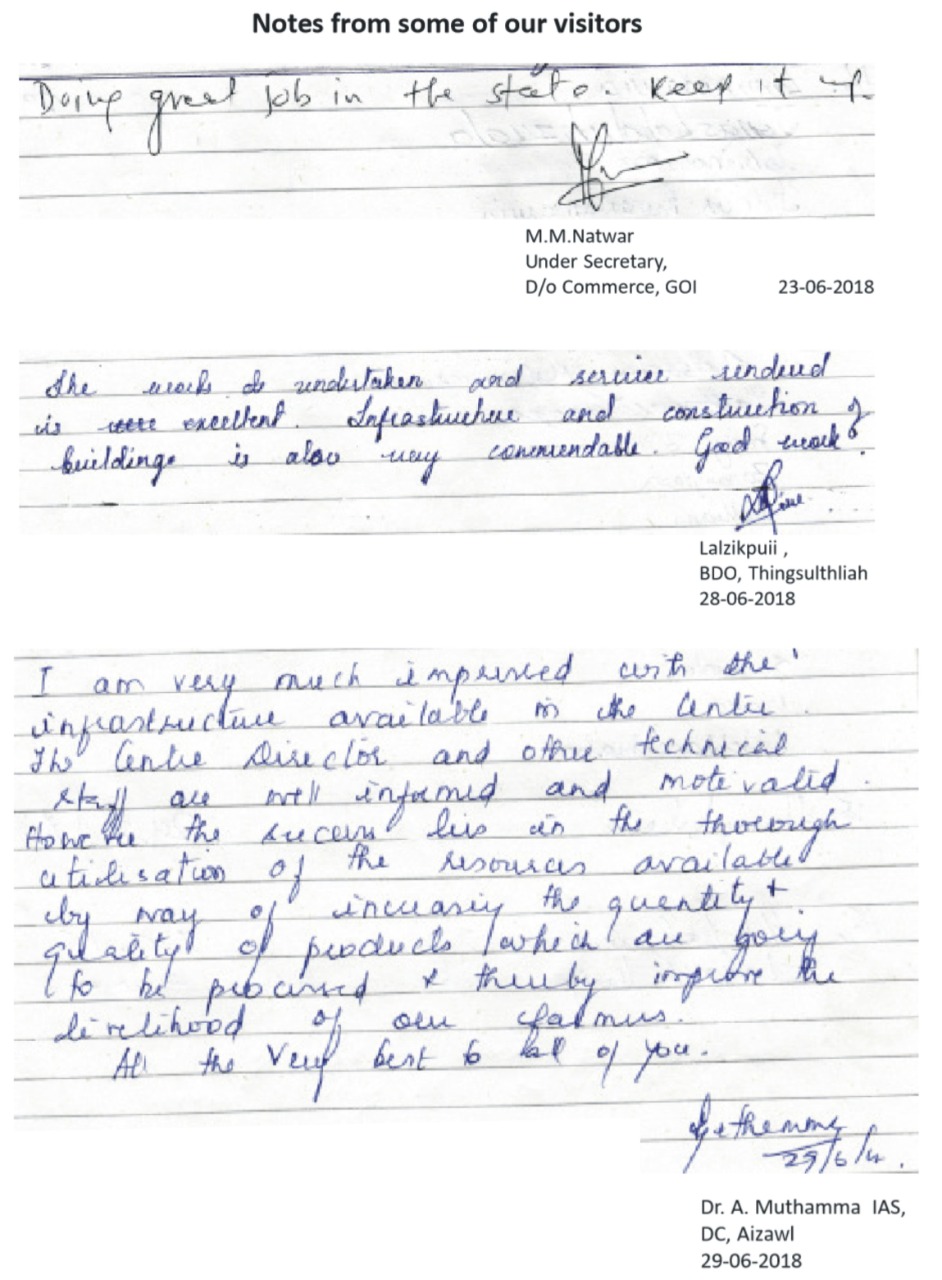 Notes from some of our visitors
Doing great job in the state. Keep it up.
M.M.Natwar
Under Secretary,
D/o Commerce, GOI 23-06-2018
The works undertaken and service rendered
is excellent. Infrastructure and construction of
buildings is also very commendable. Good work.
Lalzikpuii ,
BDO, Thingsulthliah
28-06-2018
I am very much impressed with the
infrastructure available in the Centre.
The Centre Director and other technical
staff are well informed and motivated.
However the success lies in the thorough
utilisation of the resources available
by way of increasing the quantity &
quality of products which are going
to be processed & thereby improve the
livelihood of our farmers.
All the Very best to all of you.
29/6/
Dr. A. Muthamma IAS,
DC, Aizawl
29-06-2018